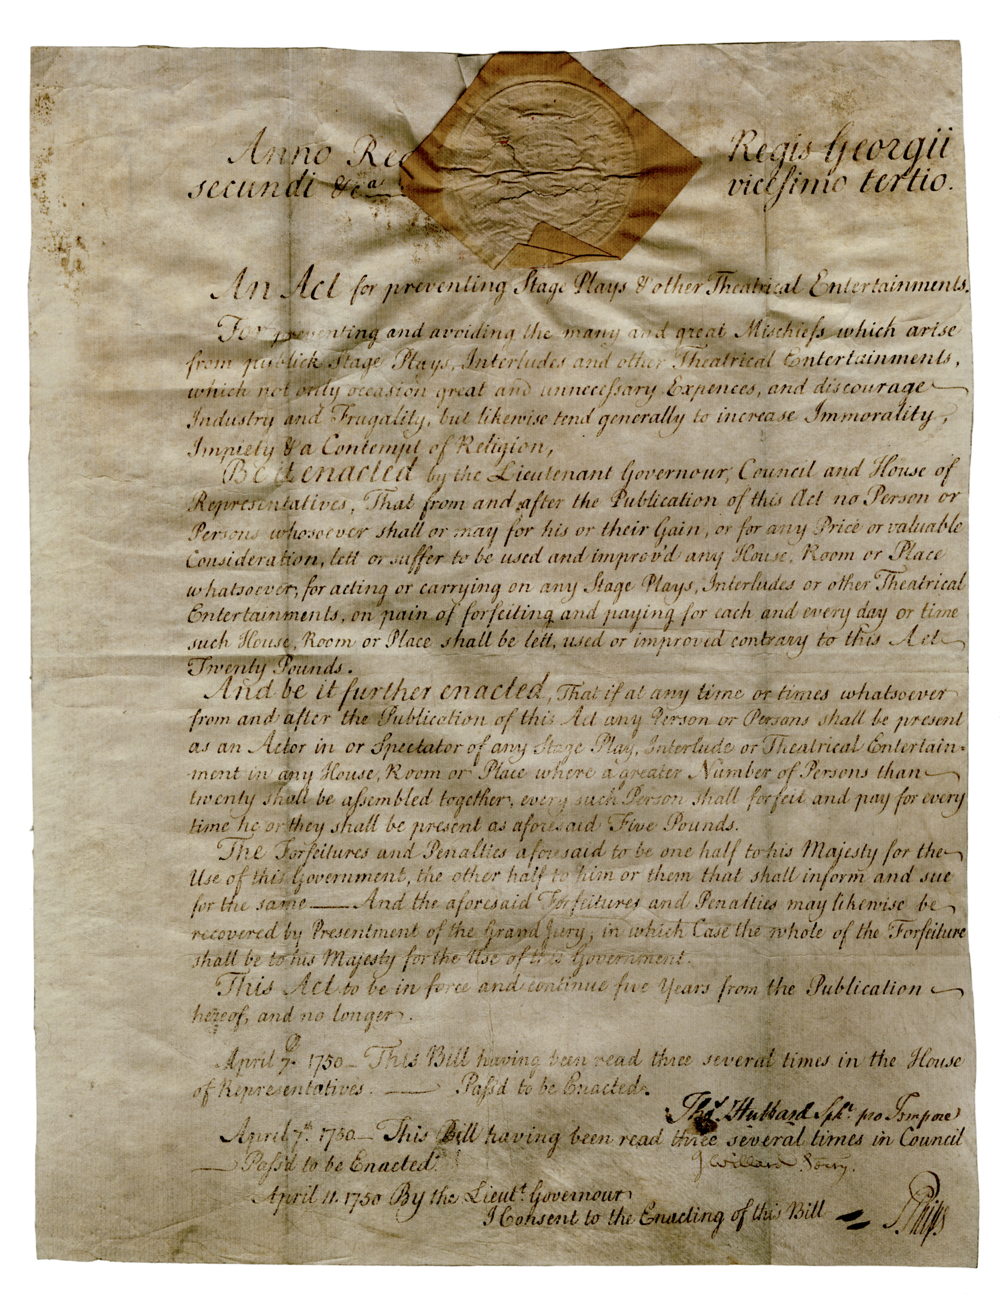 Anno Reg Regis Georgii
secundi &ca vicesimo tertio.
An Act for preventing Stage Plays & other Theatrical Entertainments.
For preventing and avoiding the many and great Mischiefs which arise
from publick Stage Plays, Interludes and other Theatrical Entertainments,
which not only occasion great and unnecessary Expences, and discourage
Industry and Frugality, but likewise tend generally to increase Immorality,
Impiety & a Contempt of Religion,
Be it enacted by the Lieutenant Governour, Council and House of
Representatives, That from and after the Publication of this Act no Person or
Persons whosoever shall or may for his or their Gain, or for any Price or valuable
Consideration, lett or suffer to be used and improv'd any House, Room or Place
whatsoever, for acting or carrying on any Stage Plays, Interludes or other Theatrical
Entertainments, on pain of forfeiting and paying for each and every day or time
such House, Room or Place shall be lett, used or improved contrary to this Act
Twenty Pounds.
And be it further enacted, That if at any time or times whatsoever
from and after the Publication of this Act any Person or Persons shall be present
as an Actor in or Spectator of any Stage Play, Interlude or Theatrical Entertain-
ment in any House, Room or Place where a greater Number of Persons than
twenty shall be assembled together, every such Person shall forfeit and pay for every
time he or they shall be present as aforesaid Five Pounds.
The Forfeitures and Penalties aforesaid to be one half to his Majesty for the
Use of this Government, the other half to him or them that shall inform and sue
for the same — And the aforesaid Forfeitures and Penalties may likewise be
recovered by Presentment of the Grand Jury, in which Case the whole of the Forfeiture
shall be to his Majesty for the Use of this Government.
This Act to be in force and continue five Years from the Publication
hereof, and no longer.
April 7th 1750 — This Bill having been read three several times in the House
of Representatives. — Pass'd to be Enacted.
Thos. Hubbard Spkr. pro Tempore
April 7th 1750 — This Bill having been read three several times in Council
— Pass'd to be Enacted
J Willard Secry.
April 11. 1750 By the Lieut. Governour
I Consent to the Enacting of this Bill
S. Phips